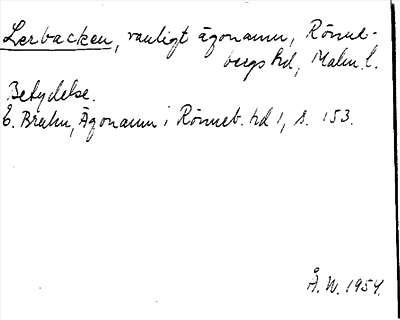 Lerbacken, vanligt ägonamn, Rönne-
bergs hd, Malm. l.
Betydelse.
E. Bruhn, Ägonamn i Rönneb. hd 1, s. 153.
Å. W. 1954.